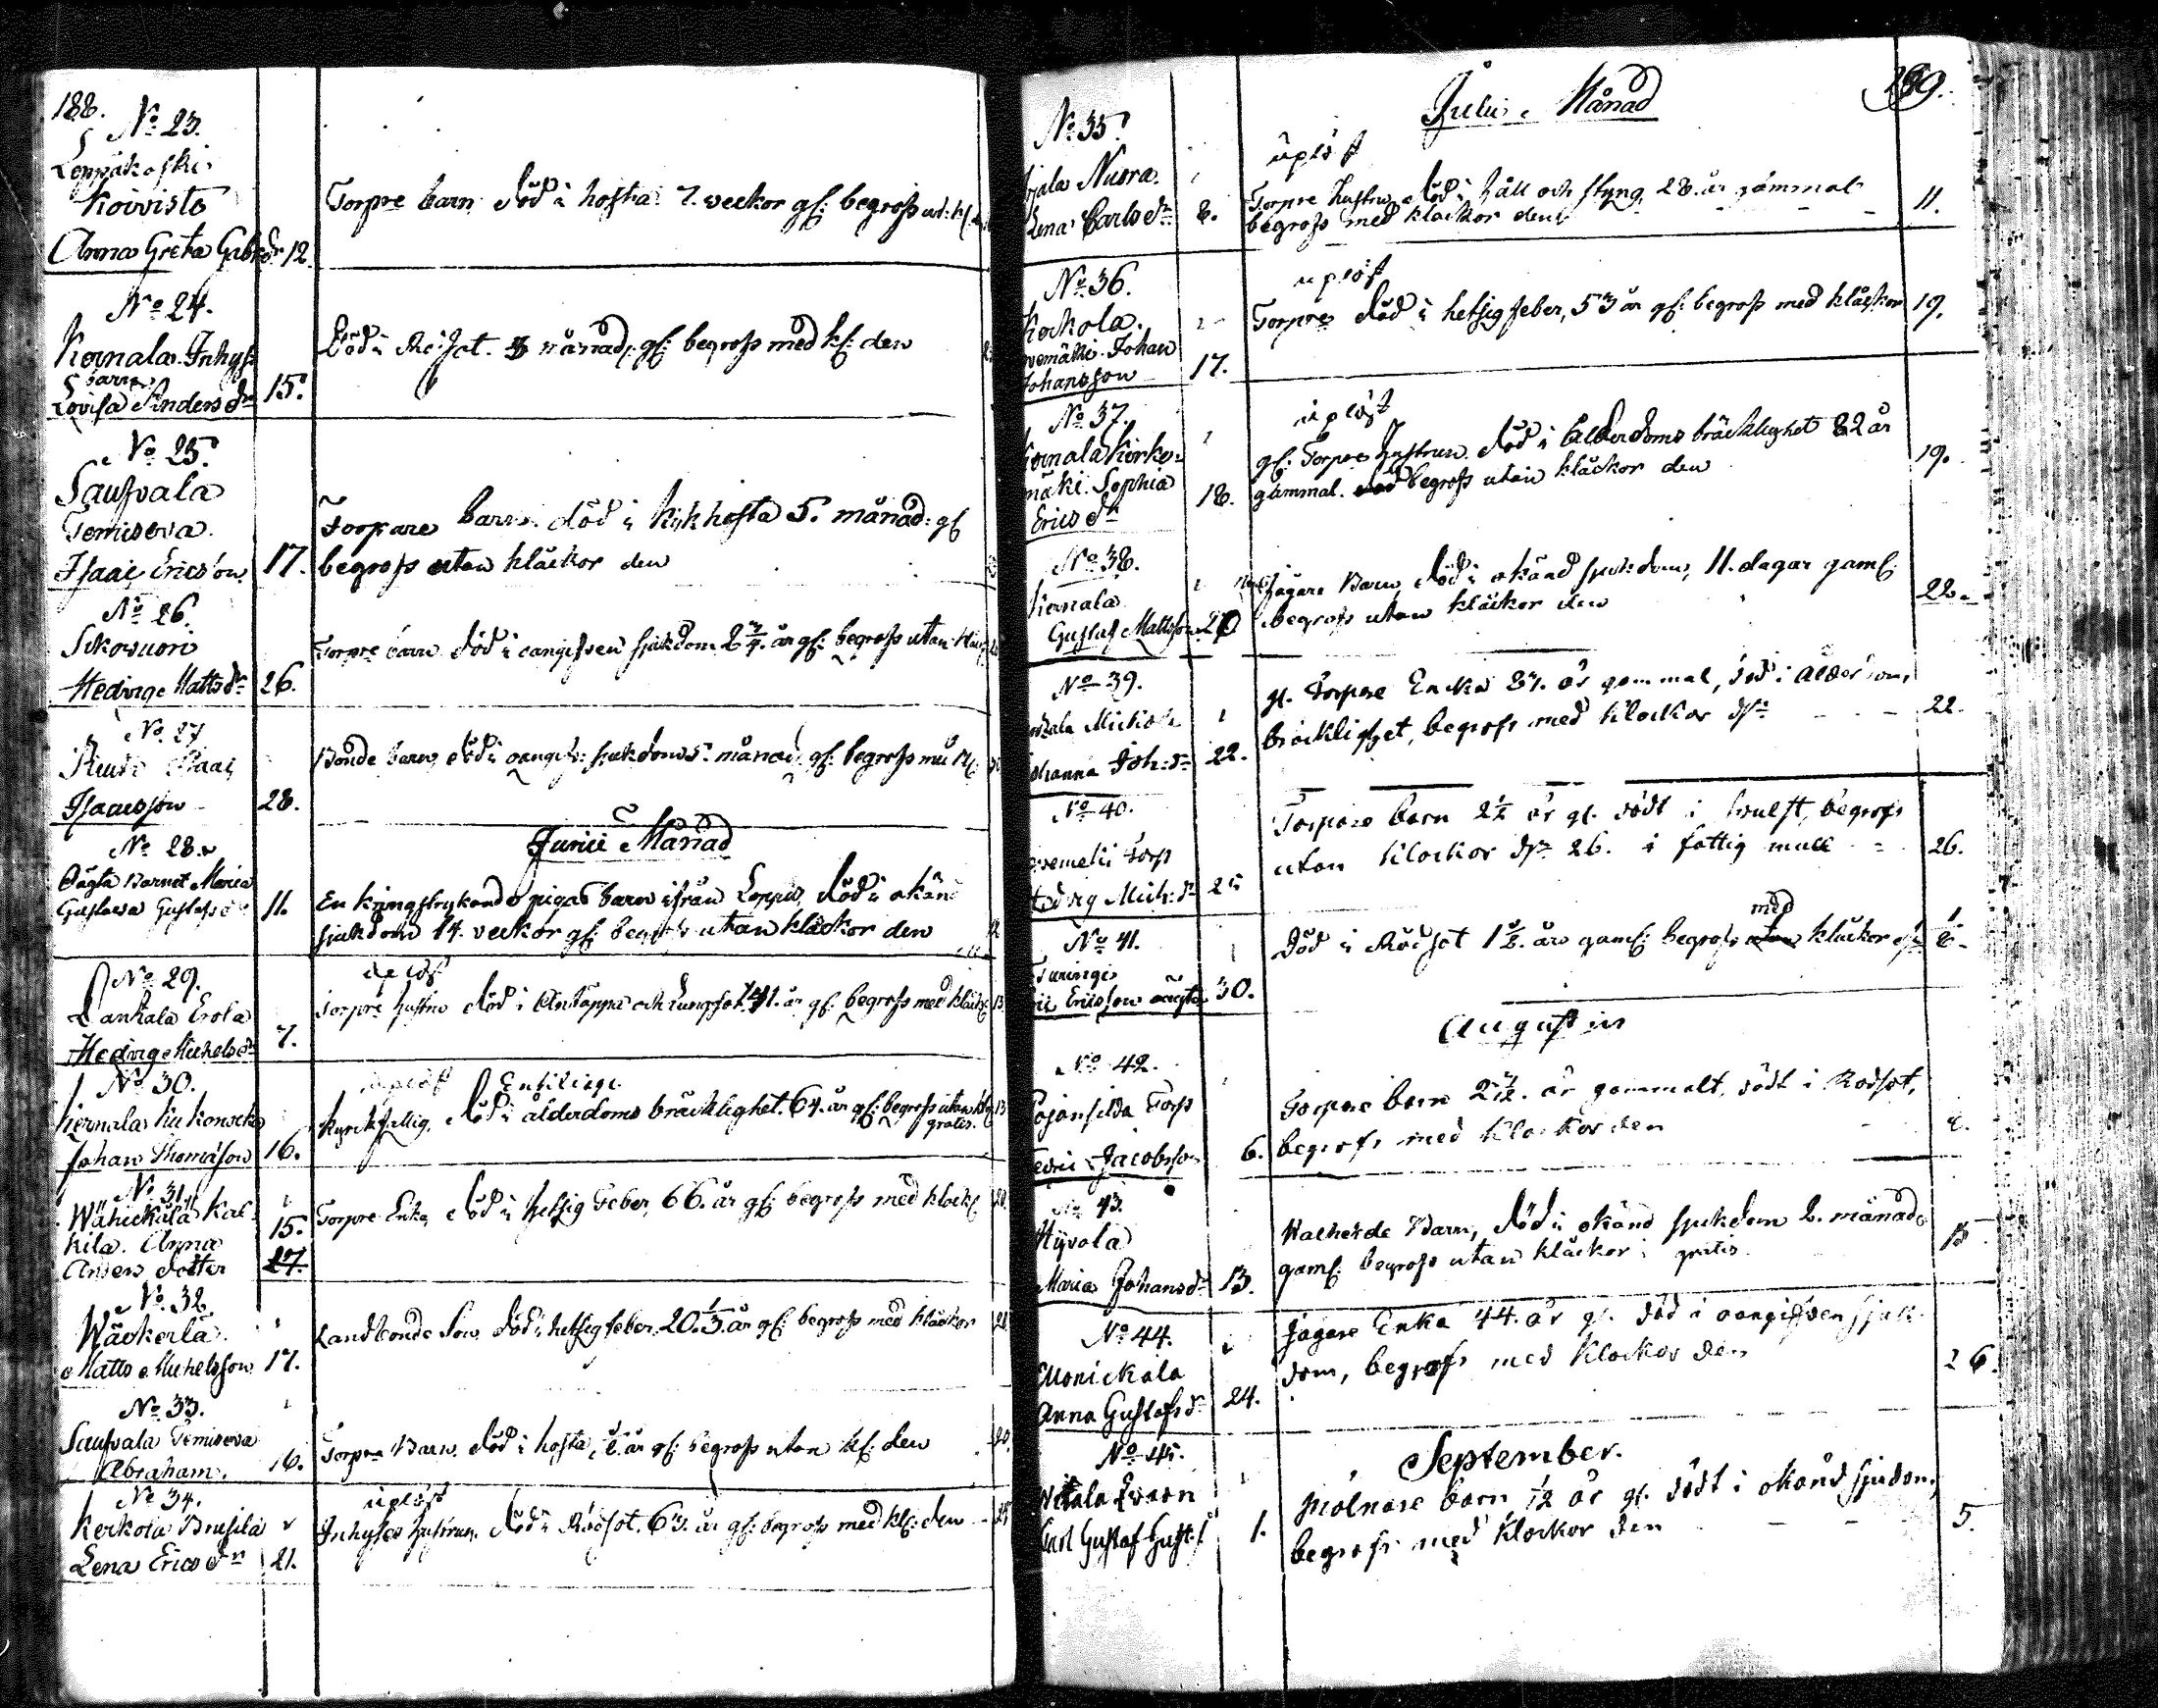 188.
No 23.
Leppäkoski
Koivisto
Anna Greta Gabrsdr 12.
Torpre barn död i hosta 7. veckor gl: begrofs
No 24.
Kernala Inhys
barn
Lovisa Anders dr 15.
Död i Rödsot. månad gl: begrofs med kl: den
No 25.
Saufvala
Temiseva
Isaac Ericsson 17.
Torpare barn död i kikhosta 5. månad: gl
begrofs utan klåckor den
No 26.
Sikovuori
Hedvig Matts dr 26.
Torpre barn död i oangifven sjukdom 2 3/4. år gl: begrofs utan
No 27
Isaac
Isaacsson 28.
Bonde barn död i oangifv: sjukdom 5. månad gl: begrofs
Junii Månad
No 28.
Oägta Barnet Maria
Gustava Gustafs dr 11.
En kringstrykande pigas barn ifrån Loppis, död i okän
sjukdom 14. veckor gl: begrofs utan klåckor den
No 29.
Lankala Erola
Hedvig Michels dr 7.
Torpre hustru död i Andtäppa och Lungsot. 41. år gl: begrofs med klåck:
No 30.
Kernala
Johan Thomasson 16.
uplöst Enkling
död i ålderdoms bräcklighet. 64. år gl: begrofs utan
gratis.
No 31.
Wähickälä Kal
kila. Anna 15.
Anders dotter 27.
Torpre Enka, död i hetsig Feber, 66. år gl: begrofs med klock:
No 32.
Wäckerlä.
Matts Michelsson 17.
Landbonde Son död i hetsig feber, 20. 1/3. år gl: begrofs med klåckor
No 33.
Saufvala Temiseva
Abraham. 16.
Torpre Barn död i hosta, år gl: begrofs utan kl: den 20.
No 34.
Kerkola
Lena Erics dr 21.
uplöst
Inhyses hustrun död i Rödsot. 63. år gl: begrofs med kl: den
189.
Julii Månad
No 35.
Nuora.
Lena Carls dr 8.
uplöst
Torpre hustru, död i håll och styng, 28. år gammal
begrofs med klåckor den 11.
No 36.
Kockola.
Johan
Johansson 17.
uplöst
Torpre död i hetsig feber, 53 år gl: begrofs med klåckor 19.
No 37.
Kernala Kerke-
mäki. Sophia
Erics dr 18.
uplöst
gl: Torpre Hustrun död i ålderdoms bräcklighet 82 år
gammal. begrofs utan klåckor den 19.
No 38.
Kernala
Gustaf Mattsson 20
Jägare Barn, död i okänd sjukdom, 11. dagar gaml:
begrofs utan klåckor den 22.
No 39.
Johanna Joh: dr 22.
gl. Torpare Encka 87. år gammal, död i ålderdoms
bräcklighet, begrofs med klockor dn 22.
No 40.
Torp
Hedvig Mich: dr 25
Torpare barn 2 1/2 år gl. dödt i svulst, begrofs
utan klockor dn 26. i fattig mull 26.
No 41.
Turingi
Eric Ericsson oägta 30.
Död i Rödsot 1 1/2. års gaml: begrofs utan med klåckor dn
Augustus
No 42.
Torp
Jacobsson 6.
Torpare barn 2 . år gammalt, dödt i Rödsot,
begrofs med klockor den 8.
No 43.
Hyvola
Maria Johansdr 13.
Barn, död i okänd sjukdom 2. månad
gaml: begrofs utan klåckor: gratis 15
No 44.
Monickala
Anna Gustafs dr 24.
Jägare Enka 44. år gl. död i oangifven sjuk
dom, begrofs med klockor den 26.
No 45.
September.
Carl Gustaf Gust: s 1.
Mölnare barn 1/2 år gl. dödt i okänd sjukdom,
begrofs med klockor den 5.